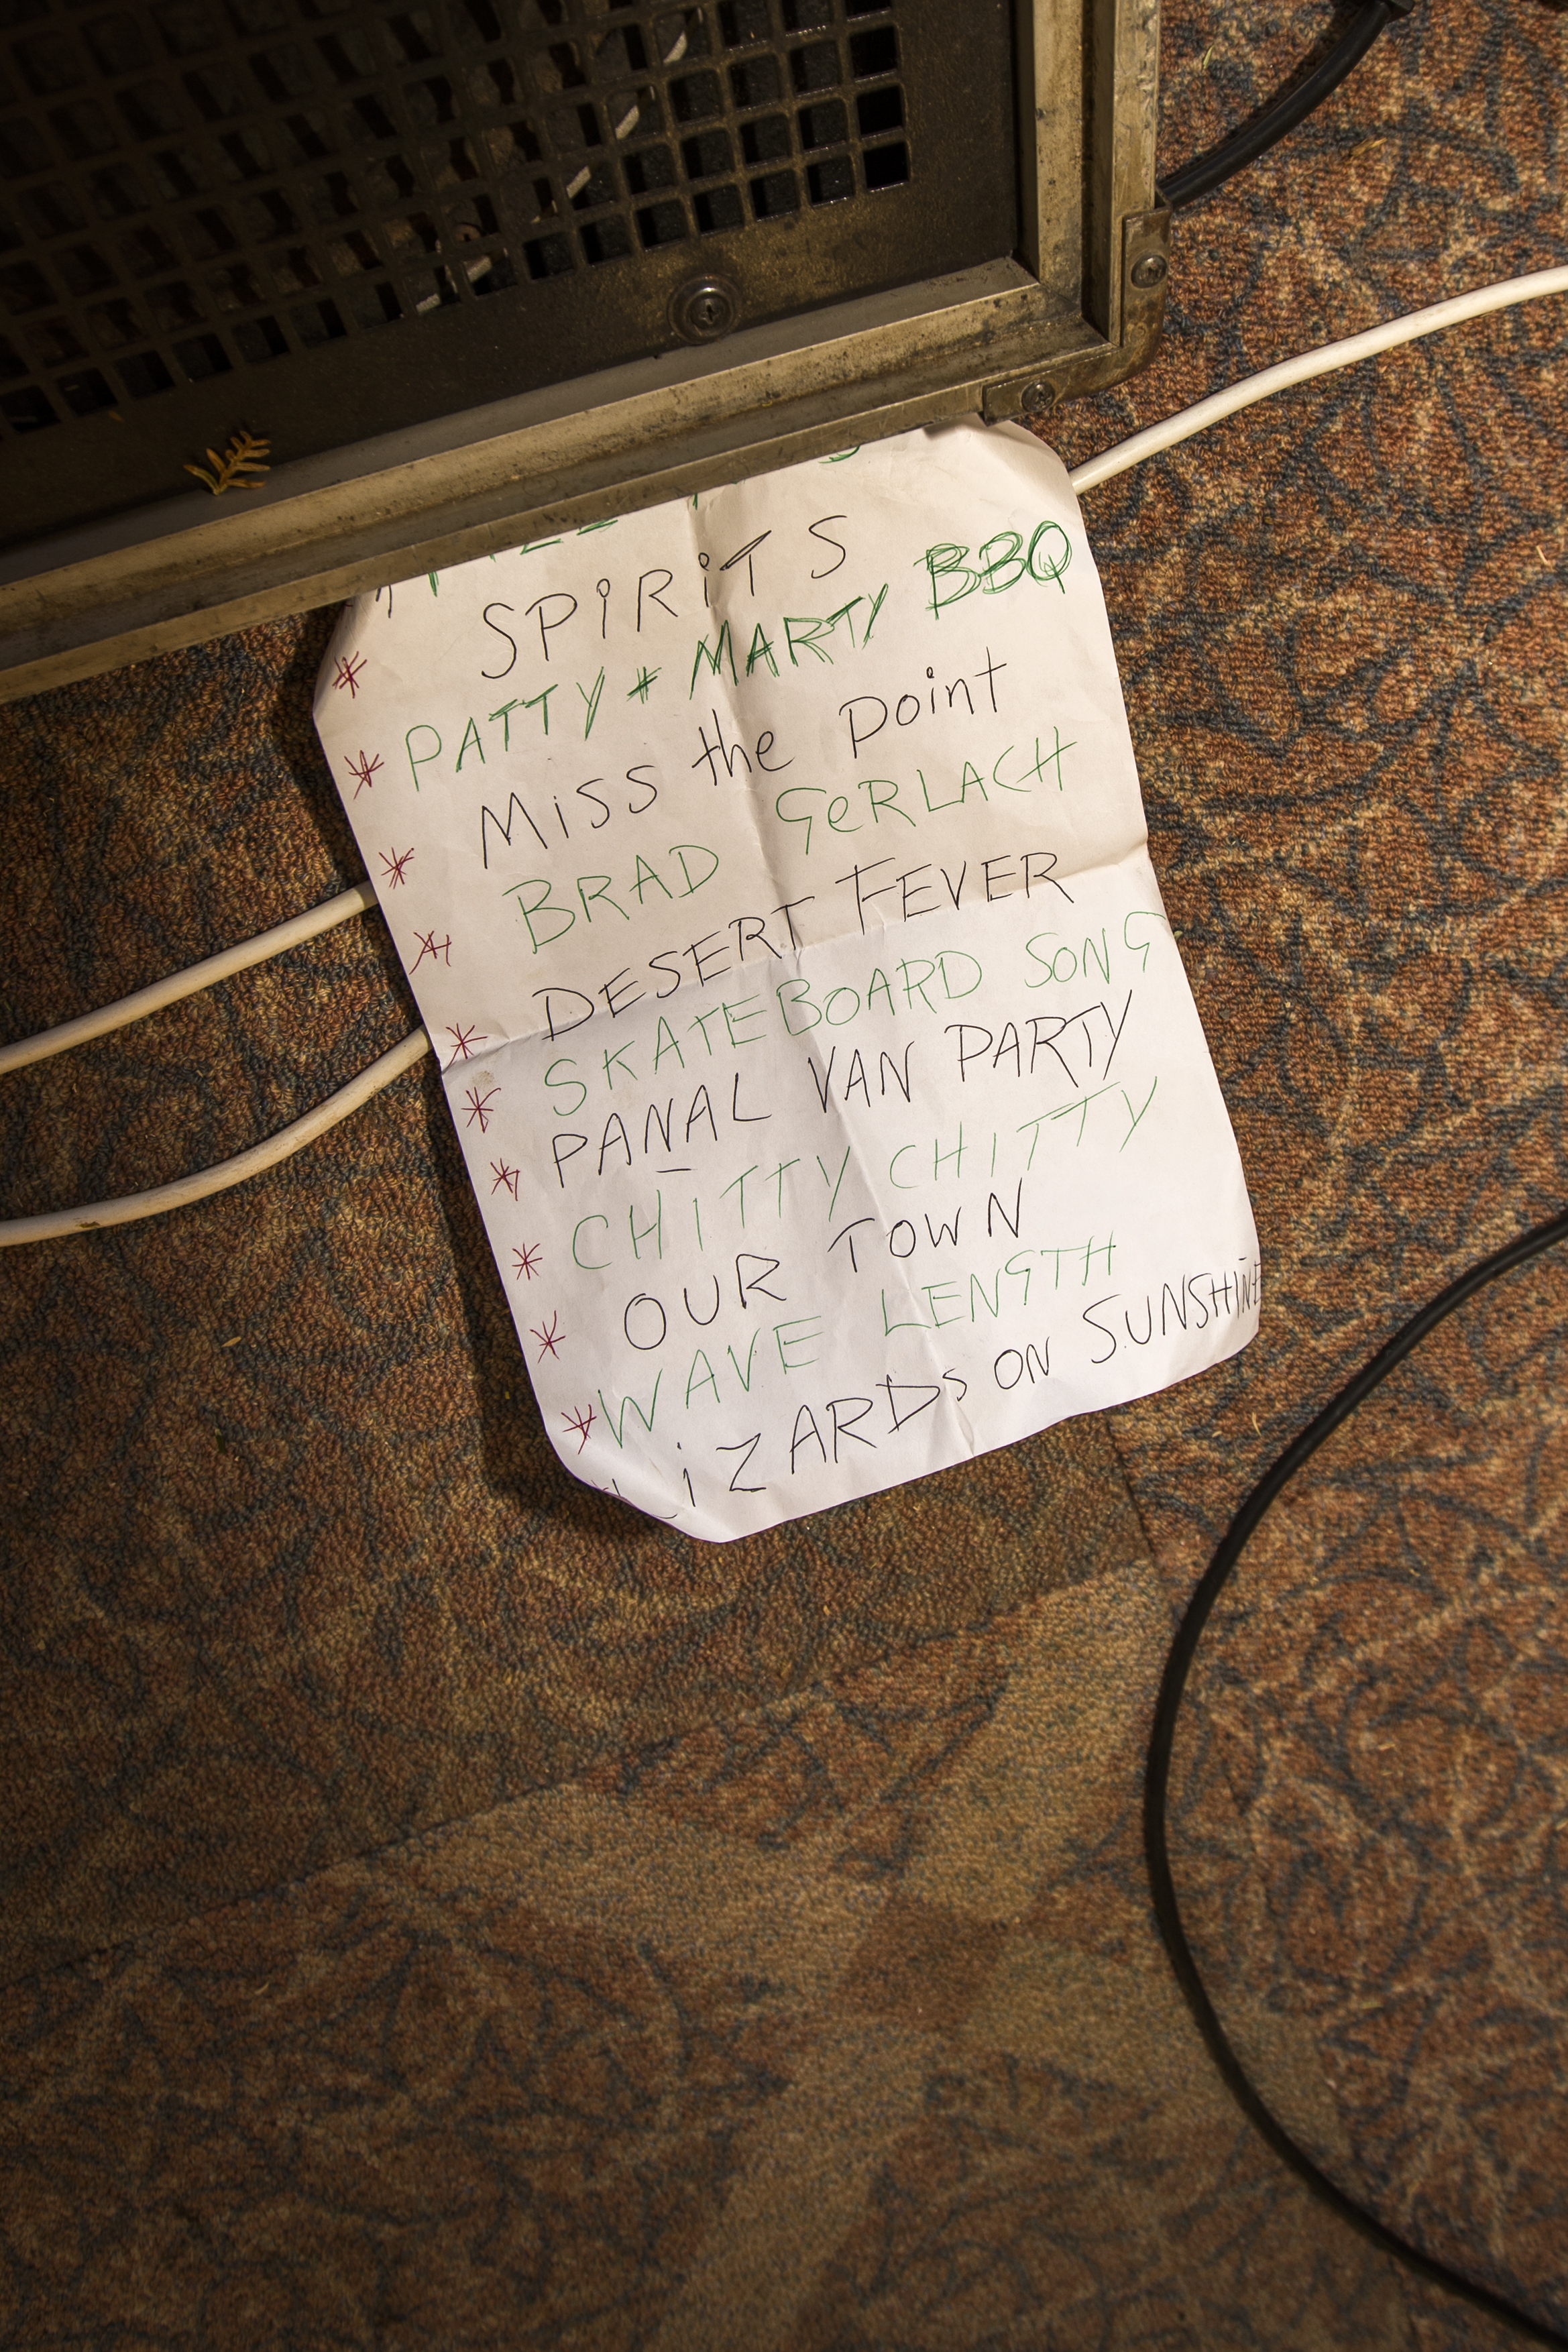 * SPiRiTS
* PATTY * MARTY BBQ
* Miss the point
* BRAD GeRLACH
* DESERT FEVER
* SKATEBOARD SONG
* PANAL VAN PARTY
* CHITTY CHITTY
* OUR TOWN
* WAVE LENGTH
LiZARDs ON SUNSHINE